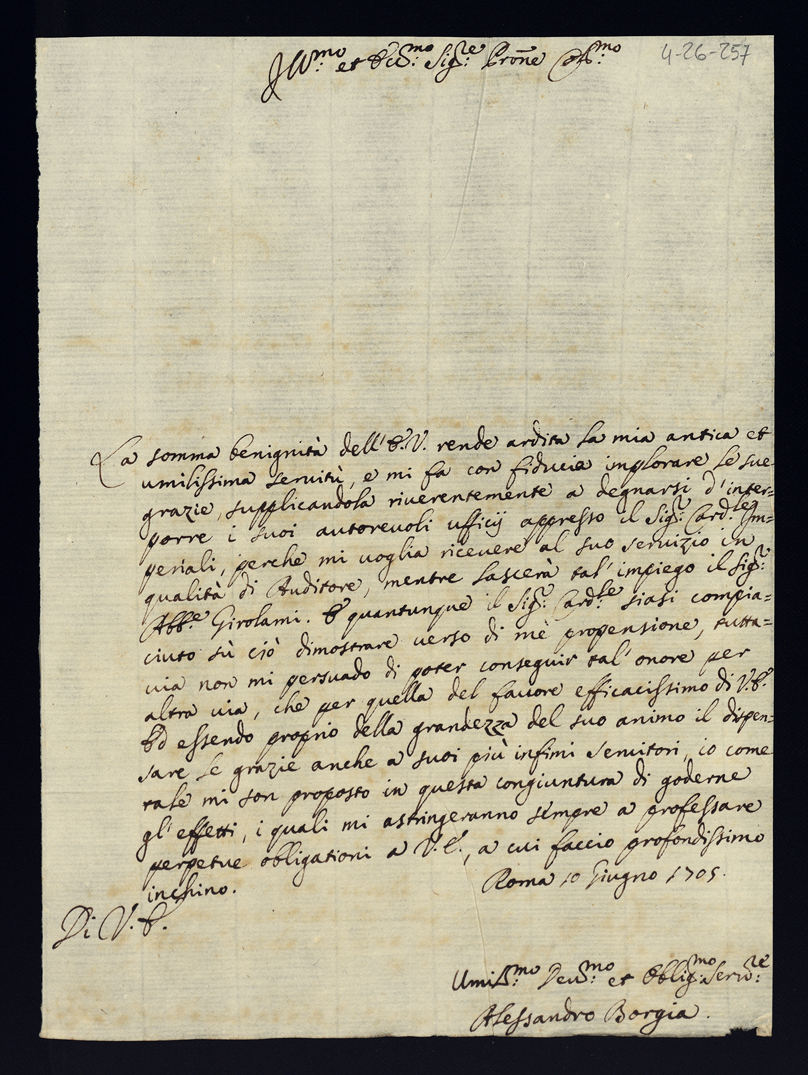 Ill:mo et Ecc:mo Sig:re Pron̄e Col:mo
4-26-257
La somma benignità dell'E.V. rende ardita la mia antica et
umilissima servitù, e mi fa con fiducia implorare le sue
grazie, supplicandola riverentemente a degnarsi d'inter=
porre i suoi autorevoli ufficij appresso il Sig:r Card:le Im=
periali, perche mi voglia ricevere al suo servizio in
qualità di Auditore, mentre lascerà tal'impiego il Sig:r
Abb:e Girolami. E quantunque il Sig:r Card:le siasi compia=
ciuto sù ciò dimostrare verso di mè propensione, tutta=
via non mi persuado di poter conseguir tal'onore per
altra via, che per quella del favore efficacissimo di V.E.
Ed essendo proprio della grandezza del suo animo il dispen=
sare le grazie anche a suoi più infimi servitori, io come
tale mi son proposto in questa congiuntura di goderne
gl'effetti, i quali mi astringeranno sempre a professare
perpetue obligationi a V.E., a cui faccio profondissimo
inchino.
Roma 10 Giugno 1705.
Di V.E.
Umiliss:mo Dev:mo et Oblig:mo Serv:re
Alessandro Borgia.